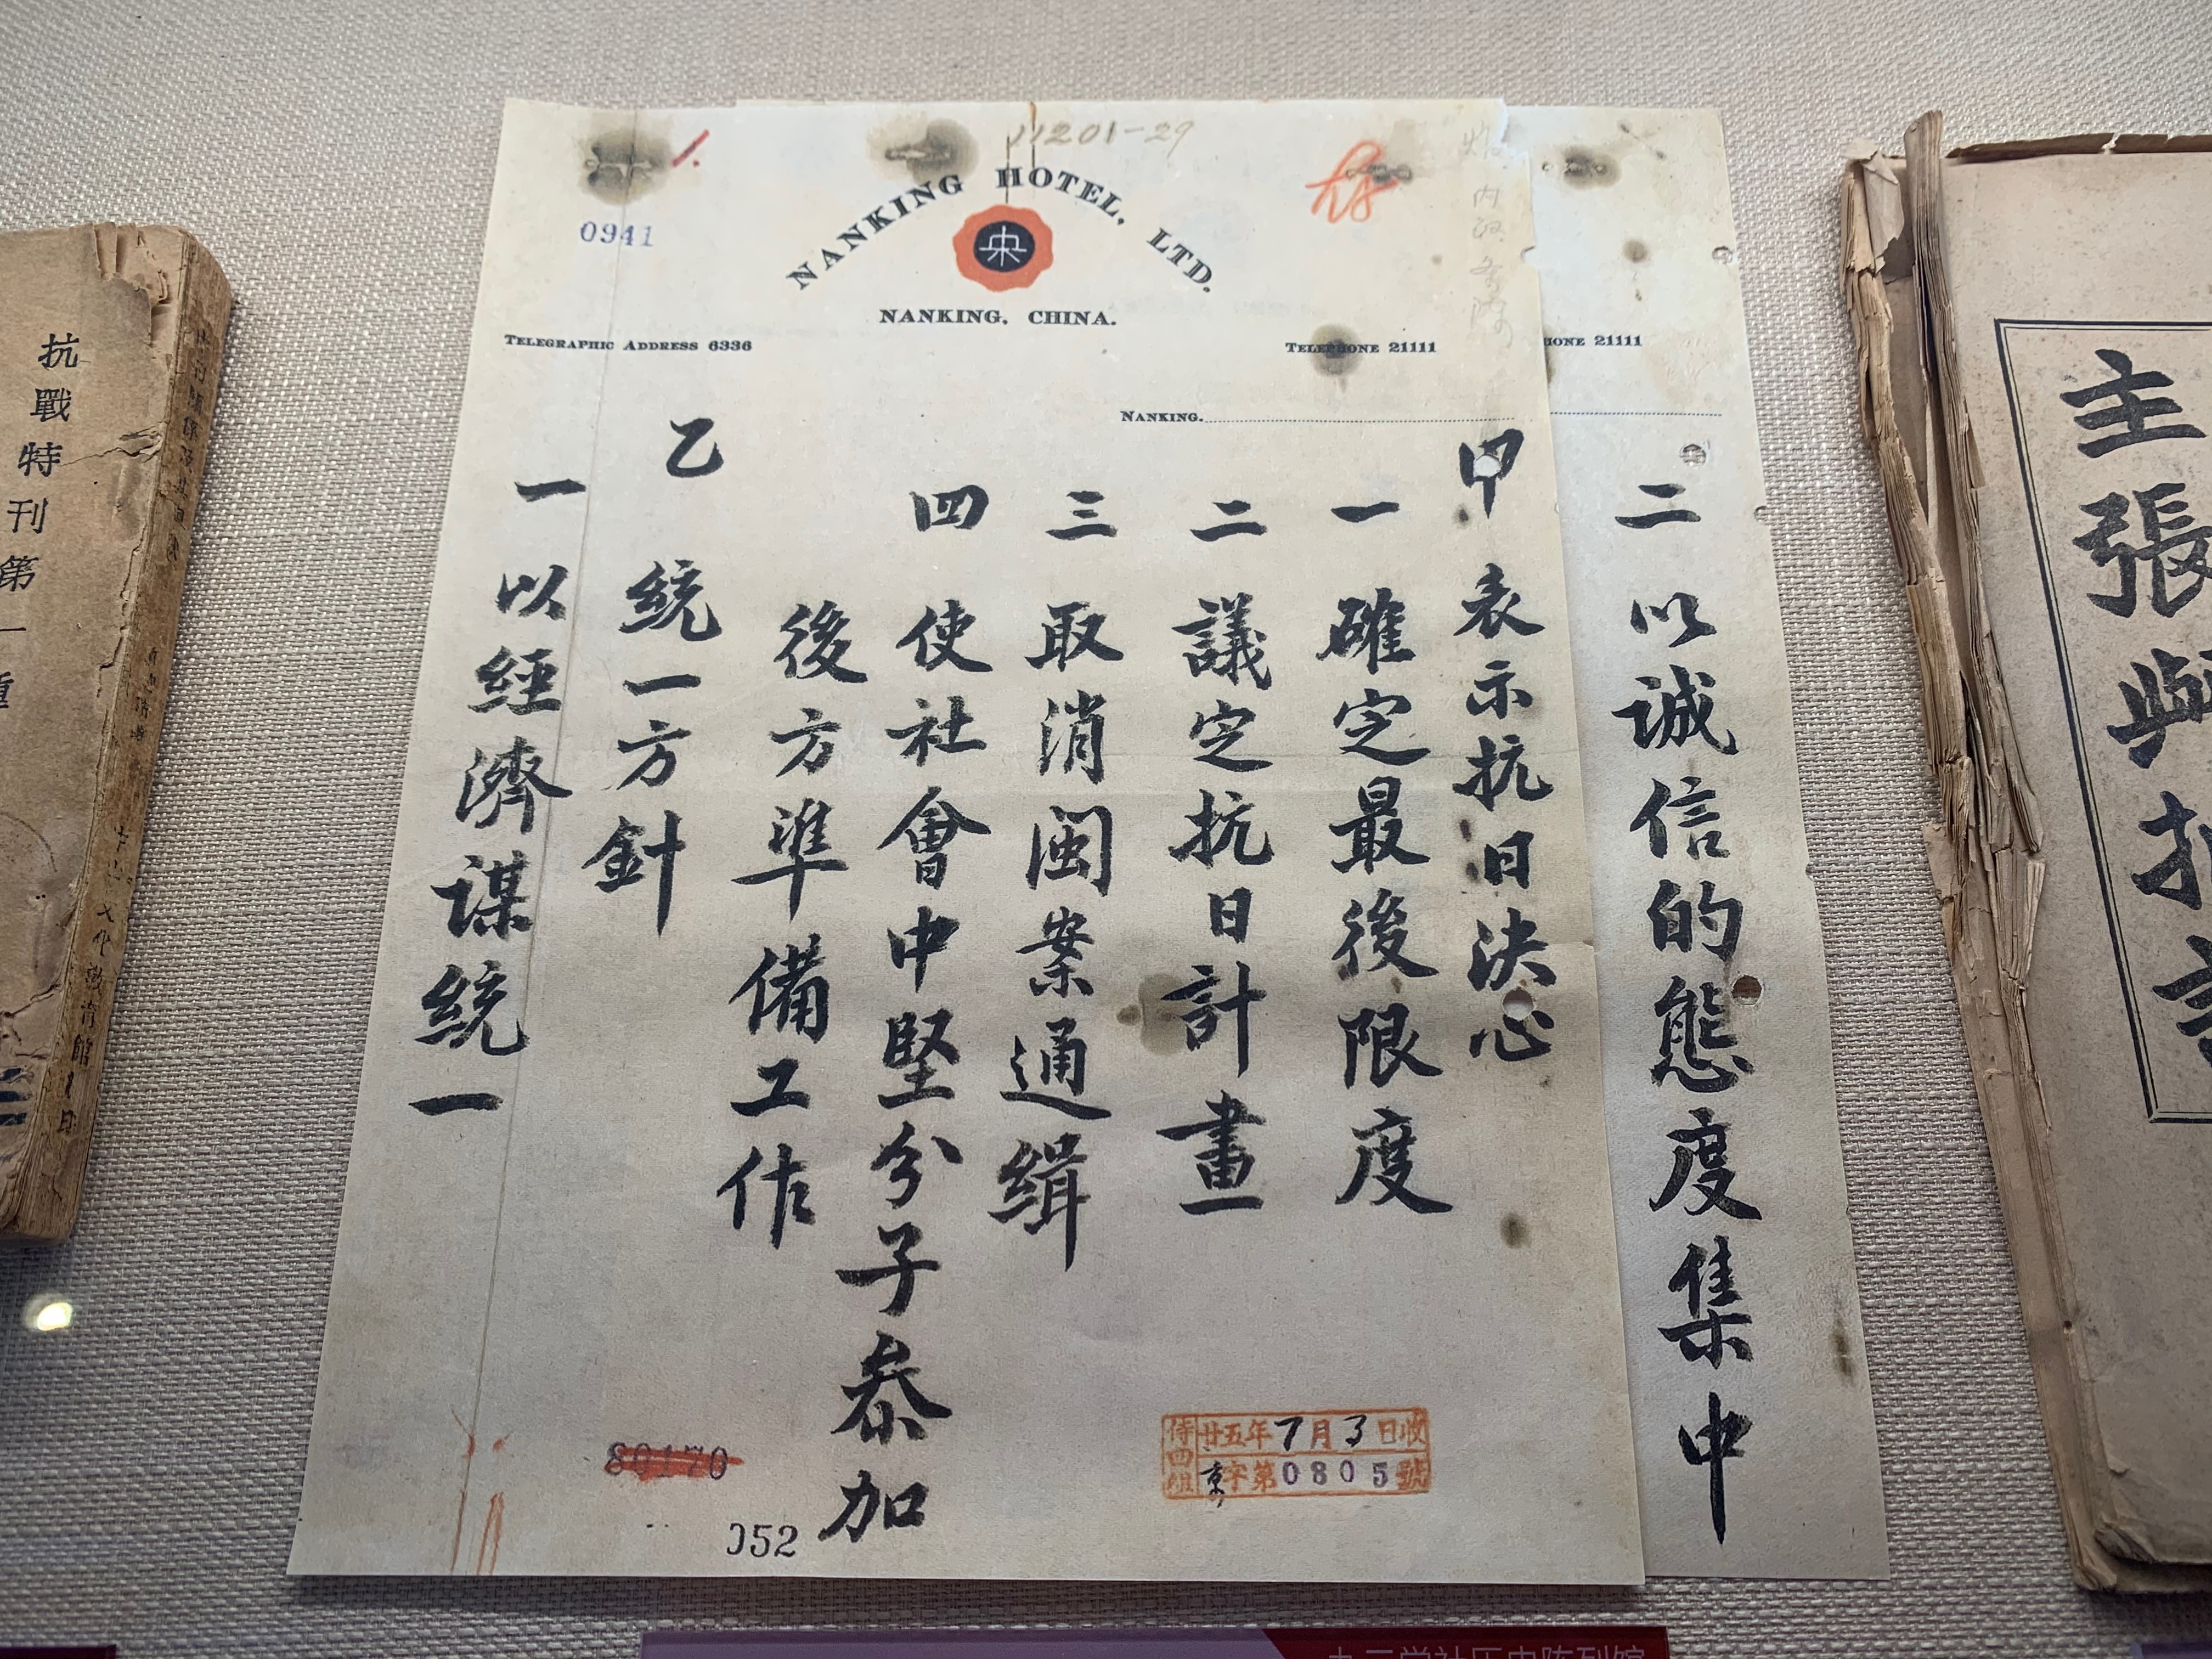 11201-29
0941
NANKING HOTEL, LTD.
央
NANKING, CHINA.
TELEGRAPHIC ADDRESS 6336
TELEPHONE 21111
NANKING.
甲 表示抗日決心
一 確定最後限度
二 議定抗日計畫
三 取消閩案通缉
四 使社會中堅分子叅加
後方準備工作
乙 統一方針
一 以經濟謀統一
侍四組
廿五年7月3日收
京字第0805號
80170
052
PHONE 21111
二 以诚信的態度集中
抗戰特刊第一種
主張與
九三学社历史陈列馆